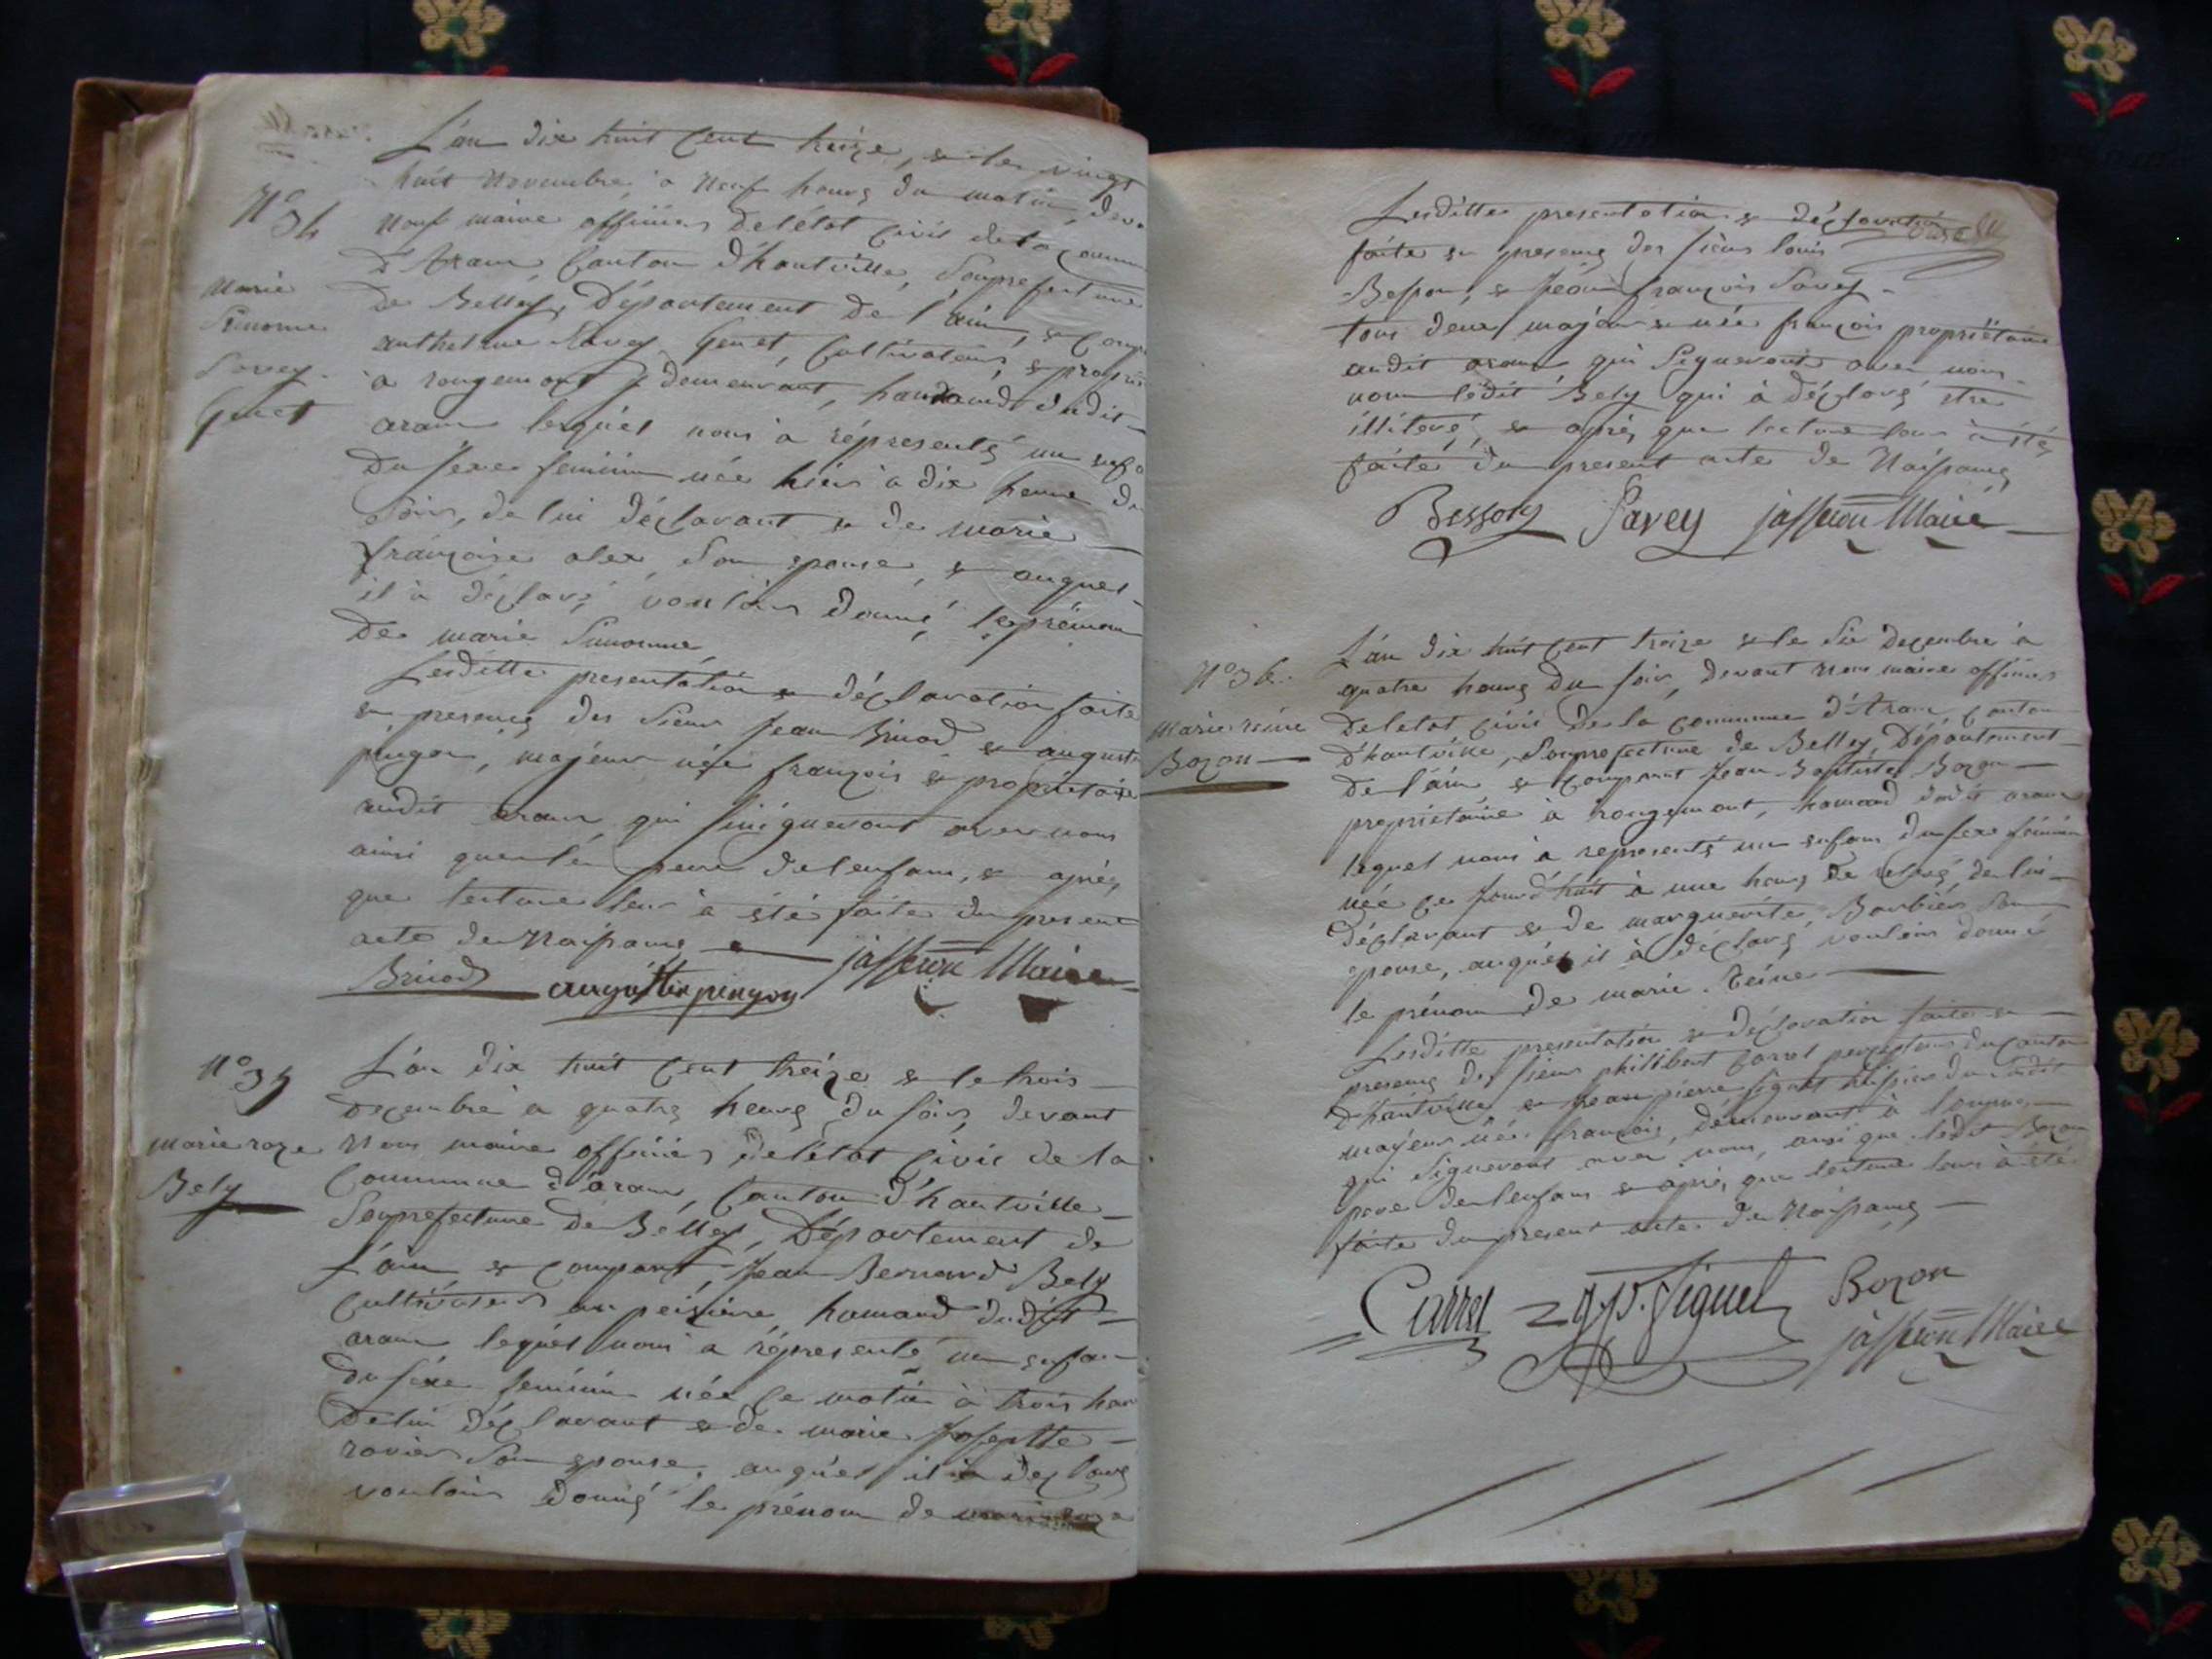 L'an dix huit cent treize, & le vingt
huit novembre à neuf heures du matin, deva
N° 34
nous maire officier de létat civil de la commu
d'Aranc, Canton d'hautville, Souprefecture
Marie
Simonne
Savey
Guet
de Belley, Département de l'ain, & comp
anthelme Savey Guet, Cultivateur, & propri
à rougemont y demeurant, hamaud dudit
aranc lequel nous à répresenté un enfa
du sexe feminin née hier à dix heure du
Soir, de lui déclarant & de marie
françoise alex, Son epouse, & auquel
il à déclaré vouloir donné le prénom
de marie Simonne
Lesditte presentation & déclaration faite
en presence des Sieur Jean Briod & augustin
pingon, majeur née françois & proprietaire
audit aranc qui Siigneront avec nous
ainsi que le pere de lenfant, & après
que lecture leur à été faite du present
acte de Naissance
Briod augustin pingon jasseron Maire
N° 35
L'an dix huit cent treize & le trois
decembre à quatre heure du soir, devant
marie roze
Bely
Nous maire officier de létat civil de la
Commune d'aranc, Canton d'hautville
Souprefecture de Belley, Département de
L'ain & comparut, Jean Bernard Bely
Cultivateur au peizière, hamaud dudit
aranc lequel nous a répresenté un enfan
du séxe feminin née ce matin à trois heu
de lui déclarant & de marie Josephte
ravier Son epouse, auquel il à déclaré
vouloir donné le prénom de marie roze
Lesditte presentation & déclaration
faite en presence des sieurs louis
Besson, & Jean françois Savey
tous deux majeur & née françois propriétaire
audit aranc qui Signeront avec nous
non ledit Bely qui à déclaré être
illiteré, & après que lecture leur à été
faite du present acte de Naissance
Besson Savey jasseron Maire
N° 36
L'an dix huit cent treize & le Six decembre à
quatre heure du soir, devant nous maire officier
Marie reine
Bozon
de létat civil de la commune d'Aranc, canton
d'hautville, Souprefecture de Belley, Département
de l'ain, & comparut Jean Baptiste Bozon
propriétaire à rougemont, hamaud dudit aranc
lequel nous à représenté un enfant du sexe féminin
née ce jourd'huit à une heure de relevé, de lui
déclarant & de marguerite Barbier Son
epouse, auquel il à déclaré vouloir donné
le prénom de marie Reine
Lesditte presentation & déclaration faite en
presence des sieurs philibert Carrel percepteur du canton
d'hautville & Jean pierre Siguet huissier dudit
majeur née françois, demeurant à
qui Signeront avec nous, ainsi que ledit Bozon
pere de lenfant & après que lecture leur à été
faite du present acte de Naissance
Carrel J.P. Siguet Bozon
jasseron Maire